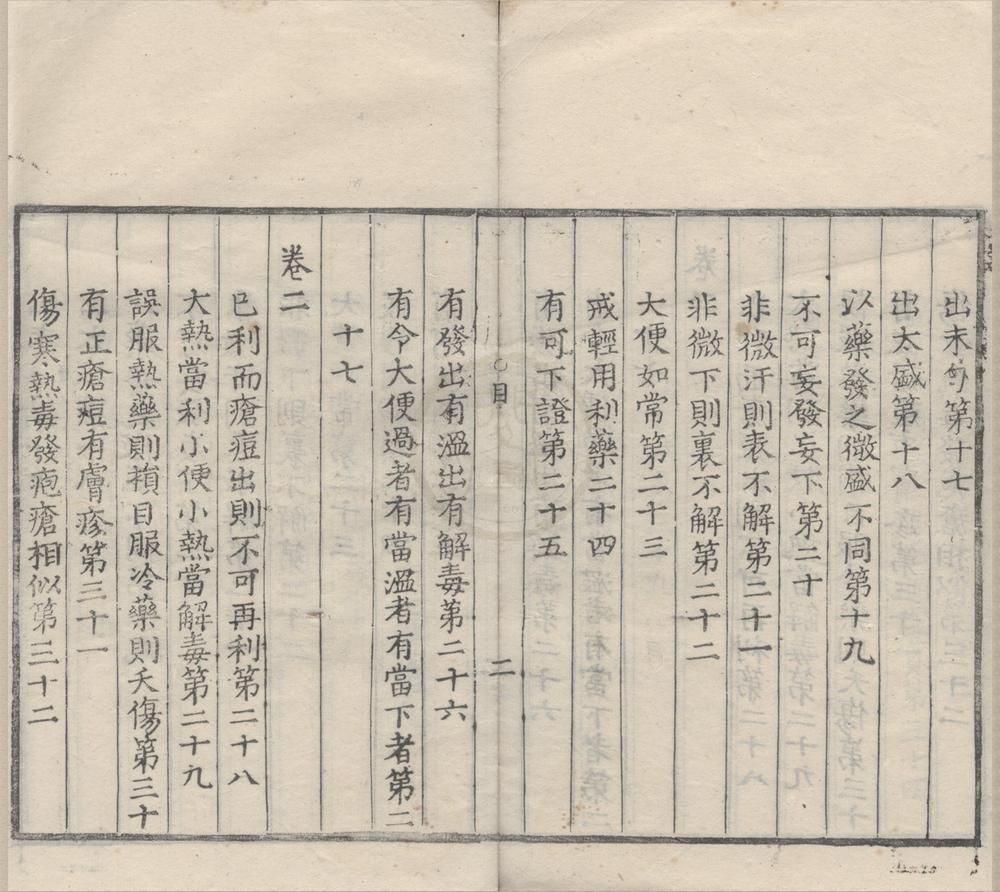 出未勻第十七
出太盛第十八
以藥發之微盛不同第十九
不可妄發妄下第二十
非微汗則表不解第二十一
非微下則裏不解第二十二
大便如常第二十三
戒輕用利藥二十四
有可下證第二十五
○目
二
有發出有溫出有解毒第二十六
有令大便過者有當溫者有當下者第二
十七
卷二
已利而瘡痘出則不可再利第二十八
大熱當利小便小熱當解毒第二十九
誤服熱藥則損目服冷藥則夭傷第三十
有正瘡痘有膚疹第三十一
傷寒熱毒發疱瘡相似第三十二